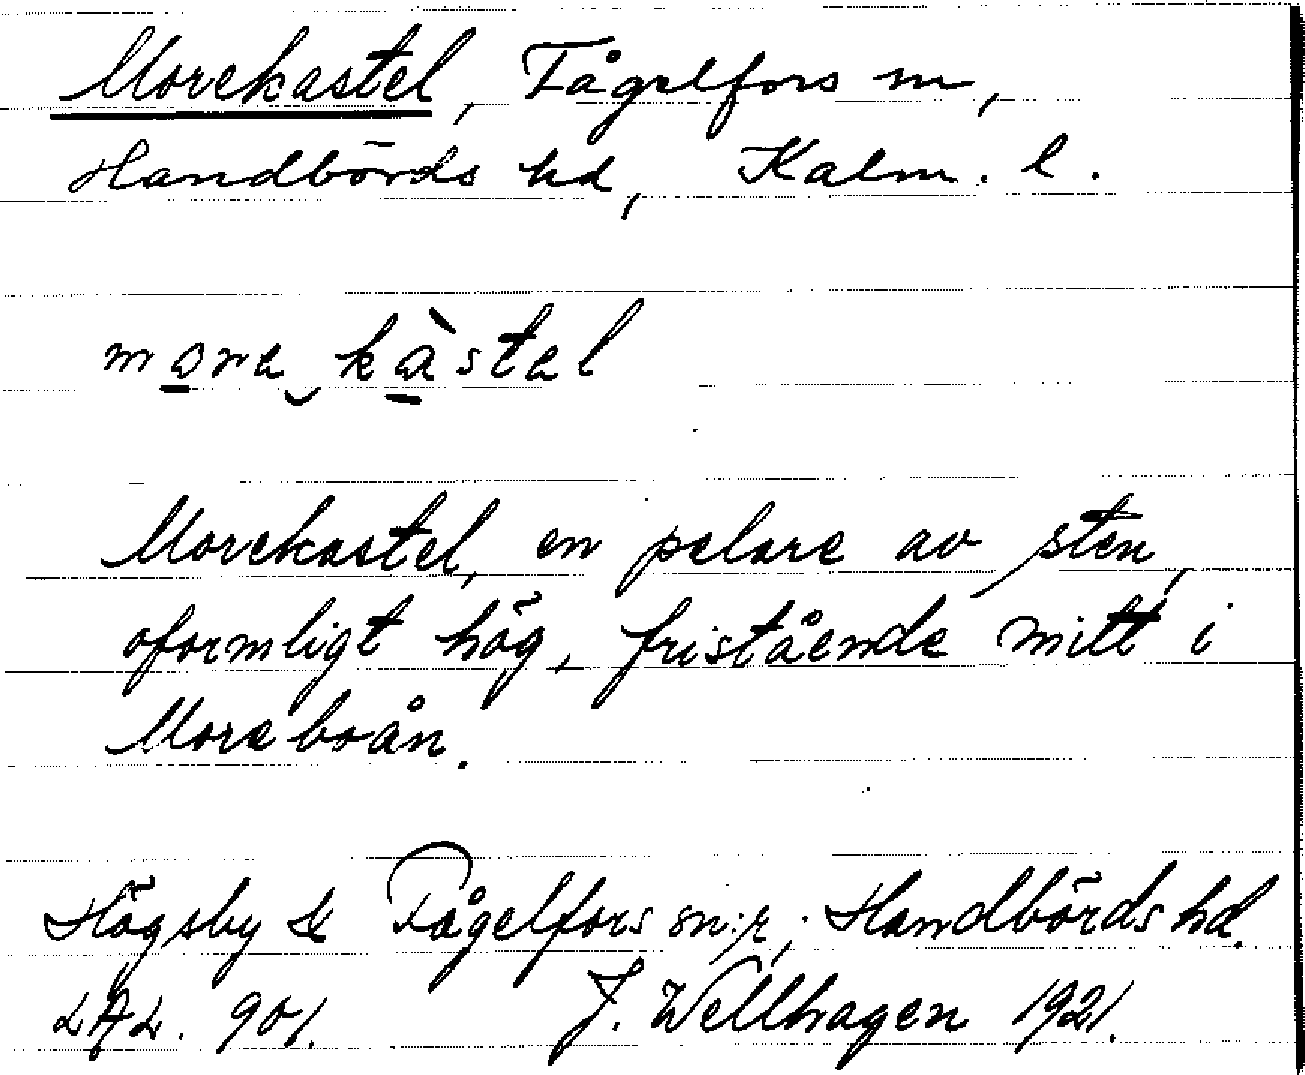 Morekastel, Fågelfors sn,
Handbörds hd, Kalm. l.
mora kàstal
Morekastel, en pelare av sten,
oformligt hög, fristående mitt i
Moreboån.
Högsby & Fågelfors sn:r, Handbörds hd.
LAL. 901. J. Wellhagen 1921.